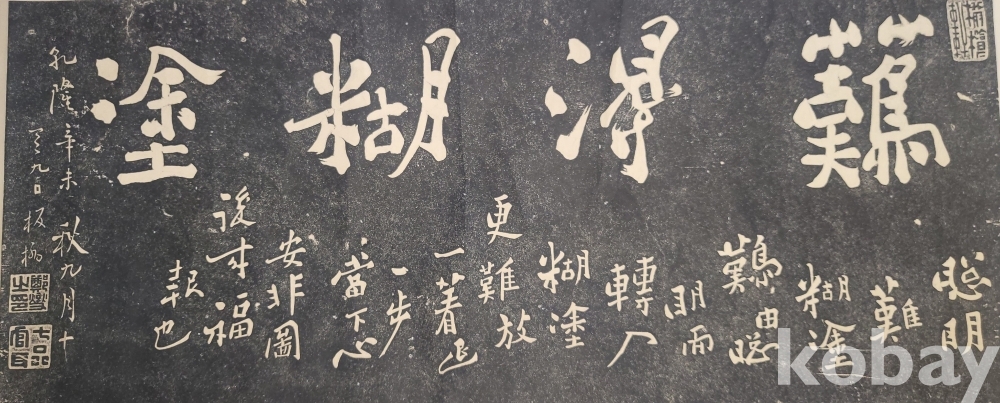 難得糊塗
聰明
難
糊塗
難由聰
明而
轉入
糊塗
更難放
一著退
一步
當下心
安非圖
後來福
報也
乾隆辛未秋九月十
有九日板橋
鄭燮之印
七品官耳
kobay